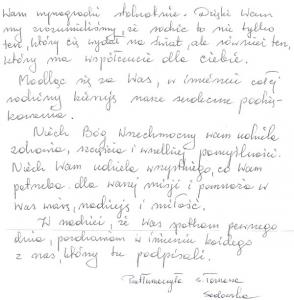 Wam wynagrodzi stokrotnie. Dzięki Wam
my zrozumieliśmy, że rodzic to nie tylko
ten, który cię wydał na świat, ale również ten,
który ma współczucie dla ciebie.
Modląc się za Was, w imieniu całej
rodziny kieruję nasze serdeczne podzię-
kowania.
Niech Bóg Wszechmocny wam udziela
zdrowia, szczęścia i wszelkiej pomyślności.
Niech Wam udziela wszystkiego, co Wam
potrzeba dla waszej misji i pomnaża w
Was wiarę, nadzieję i miłość.
W nadziei, że Was spotkam pewnego
dnia, pozdrawiam w imieniu każdego
z nas, który tu podpisali.
Przetłumaczyła s. Teresa
Sadowska